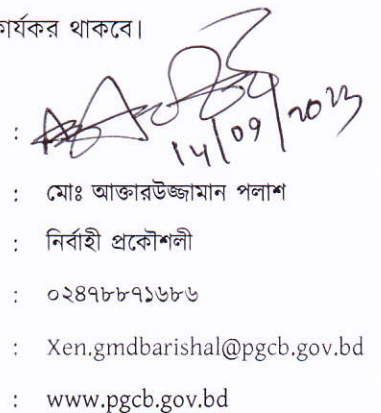 কার্যকর থাকবে।
:
14/09/2023
: মোঃ আক্তারউজ্জামান পলাশ
: নির্বাহী প্রকৌশলী
: ০২৪৭৮৮৭১৬৮৬
: Xen.gmdbarishal@pgcb.gov.bd
: www.pgcb.gov.bd